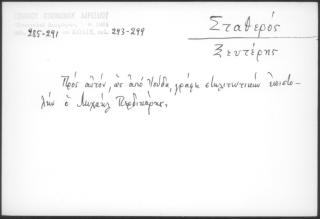 285-291
293-299
Σταθερός
Ξεντέρης
Πρός αὐτόν, ὡς ἀπό Νούδα, γράφει στηλιτευτικήν ἐπιστο-
λήν ὁ Μιχαήλ Περδικάρης.